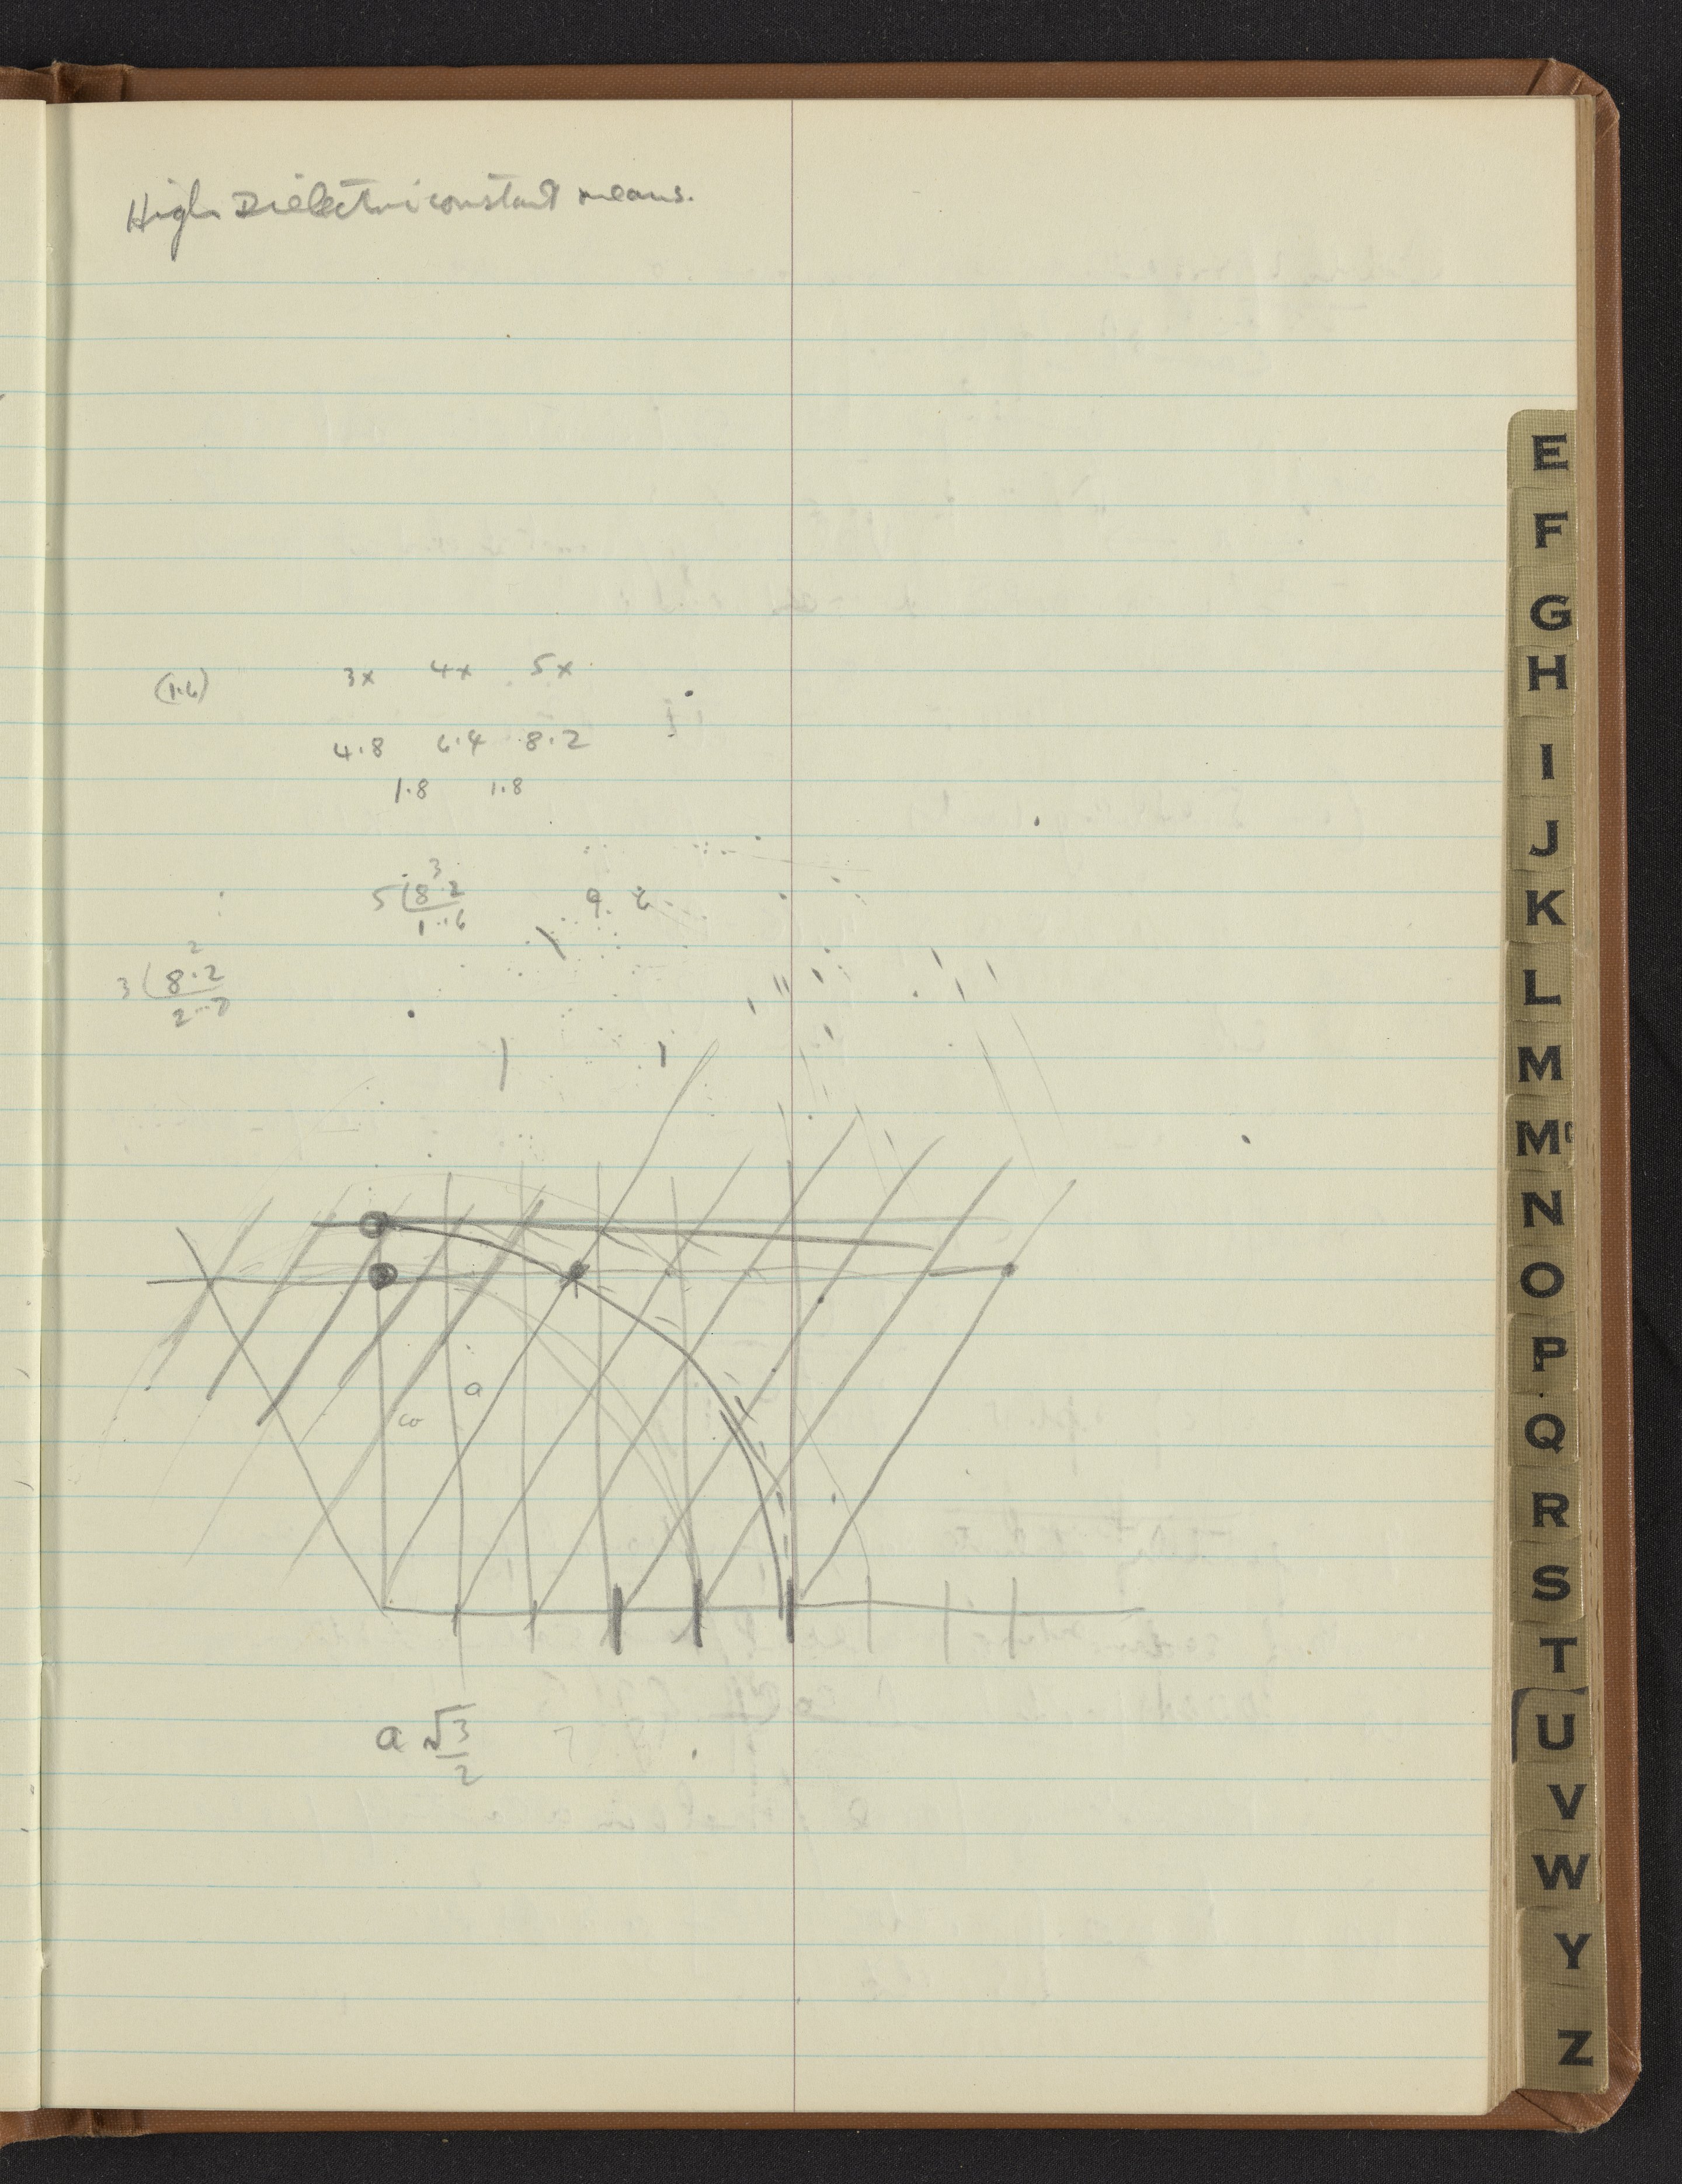 High Dielectric constant means.
(1.6) 3x 4x 5x
4.8 6.4 8.2
1.8 1.8
5 8.2
1.6
3 8.2
2.7
a
a √3
2
E
F
G
H
I
J
K
L
M
Mc
N
O
P
Q
R
S
T
U
V
W
Y
Z